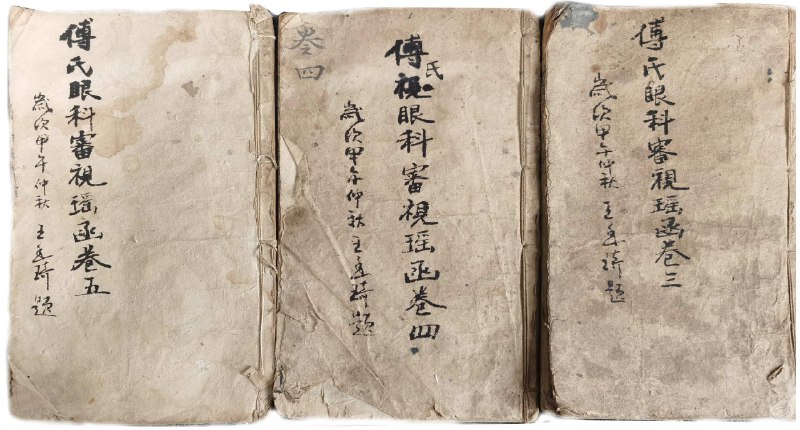 傅氏眼科審視瑤函卷三
歲次甲午仲秋 王琦題
傅氏眼科審視瑤函卷四
歲次甲午仲秋 王琦題
卷四
傅氏眼科審視瑤函卷五
歲次甲午仲秋 王琦題